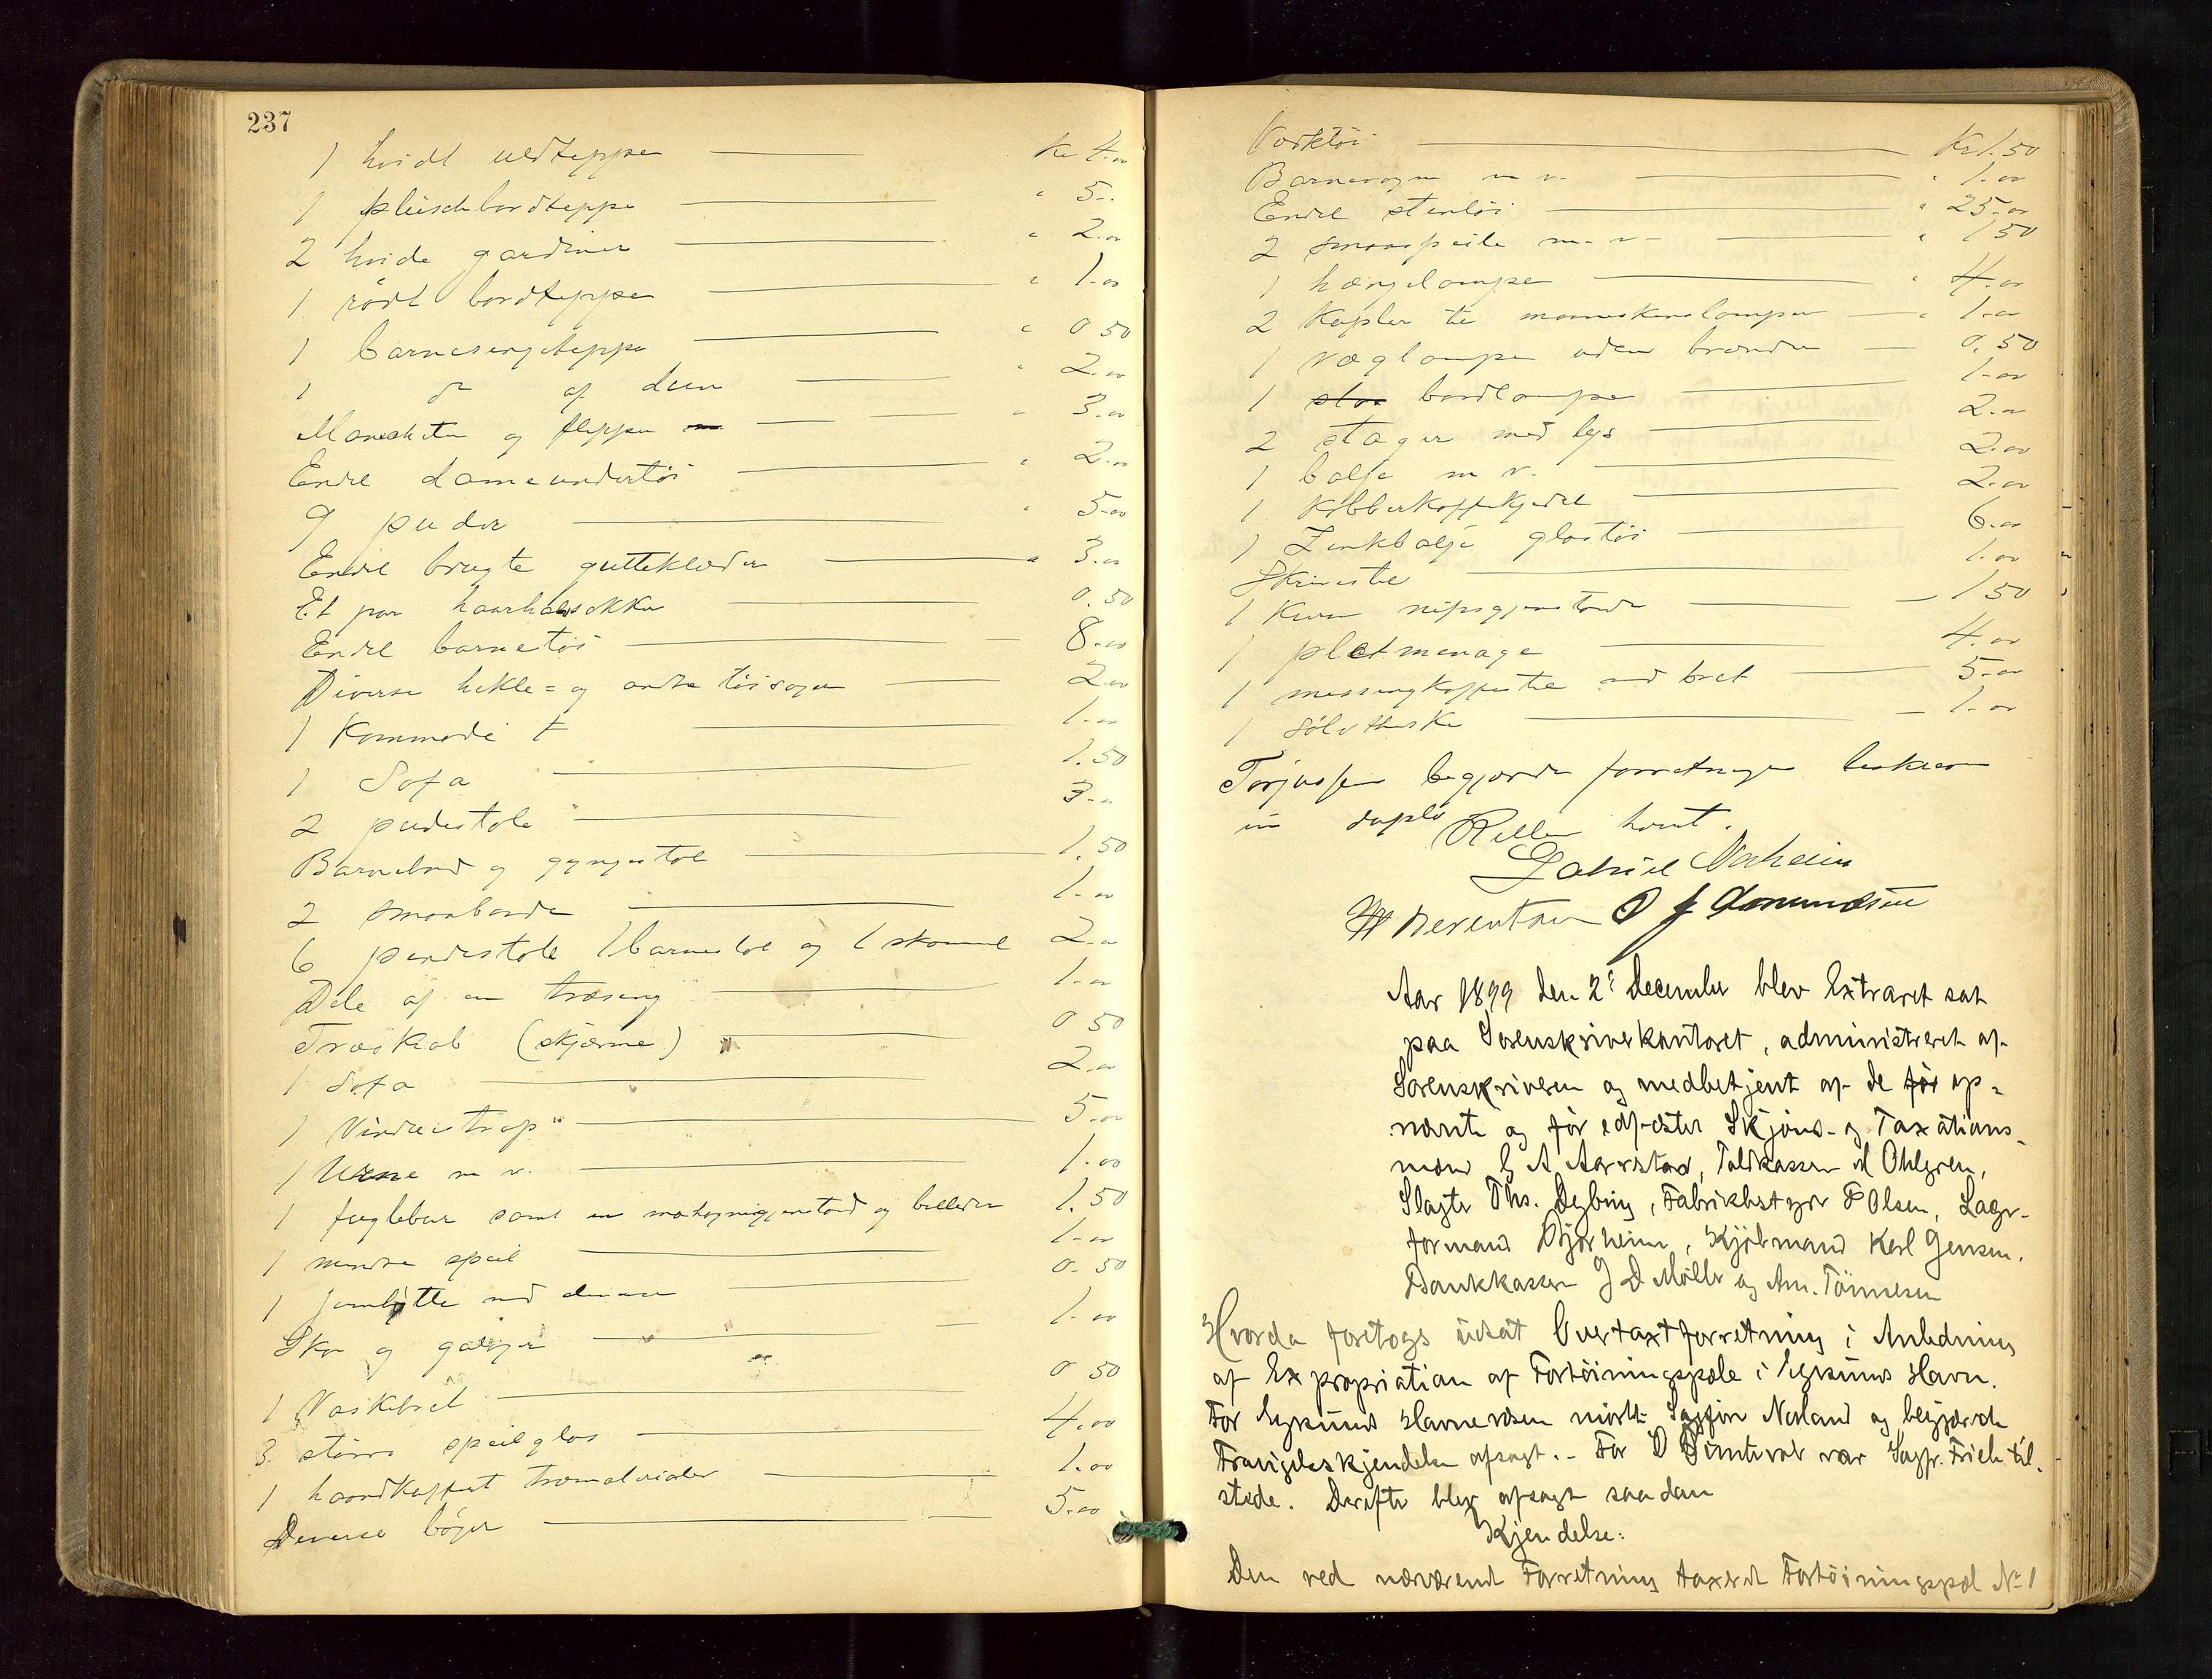 237
1 hvidt uldteppe Kr 4.00
1 plüschbordteppe " 5-.
2 hvide gardiner " 2.00
1 rödt bordteppe " 1.00
1 barnesengteppe " 0 50
1 do af dun " 2.00
Manschetter og flipper " 3.00
Endel dameundertöi " 2.00
9 puder " 5.00
Endel brugte gutteklæder " 3.00
Et par haarhalsokker 0.50
Endel barnetöi 8.00
Diverse hekle= og andre töisager 2.00
1 Kommode 1.00
1 Sofa 1.50
2 pudestole 3.00
Barnebord og gyngestol 1.50
2 smaaborde 1.00
6 pindestole 1 barnestol og 1 skammel 2.00
Dele af en træseng 1.00
Træskab (skjærme) 0 50
1 Sofa 2.00
1 Vindeltrap 5.00
1 Urne m v. 1.00
1 fuglebur samt en mahognigjenstand og billeder 1.50
1 mindre speil 1.00
1 jernbøtte med 0.50
Sko og galoger 1.00
1 Vaskebret 0 50
3 större speilglas 4.00
1 haandkuffert træmaterialer 1.00
Diverse bøger 5.00
Værktöi Kr 1.50
Barnevogn m v. " 1.00
Endel stentöi " 25.00
2 smaaspeile m. v " 1 50
1 hængelampe " 4.00
2 Kupler til lamper " 1.00
1 væglampe uden brænder 0.50
1 bordlampe 1.00
2 stager med lys 2.00
1 balje m v. 2.00
1 Kobberkaffekjedel 2.00
1 Zinkbalje glastöi 6.00
Skrivestel 1.00
1 Kurv nipsgjenstande 1 50
1 pletmenage 4.00
1 messingkaffestel med bret 5.00
1 sölvtheske 1.00
Torjussen begjærede forretningen beskreven
in duplo
Retten hævet.
Gabriel Nerheim
W Berentsen O J Aamundsen
Aar 1899 den 2. December blev Extraret sat
paa Sorenskriverkontoret, administreret af
Sorenskriveren og medbetjent af de før op-
nævnte og før edfæstede Skjøns- og Taxations-
mænd G A Aarrestad, Toldkasserer M Ohlgren,
Slagter Ths. Dybing, Fabrikbestyrer F Olsen, Lager-
formand Bjorheim, Kjöbmand Karl Jensen,
Bankkasserer J D Møller og Am. Tönnesen
Hvorda foretogs udsat Overtaxtforretning i Anledning
af Expropriation af Fortöiningspæle i Egersunds Havn.
For Egersunds Havnevæsen mødte Sagfører Norland og begjærede
Fravigelseskjendelse afsagt.- For D var Sagfr. Frich til-
stede. Derefter blev afsagt saadan
Kjendelse:
Den ved nærværende Forretning taxerede Fortöiningspæl No 1